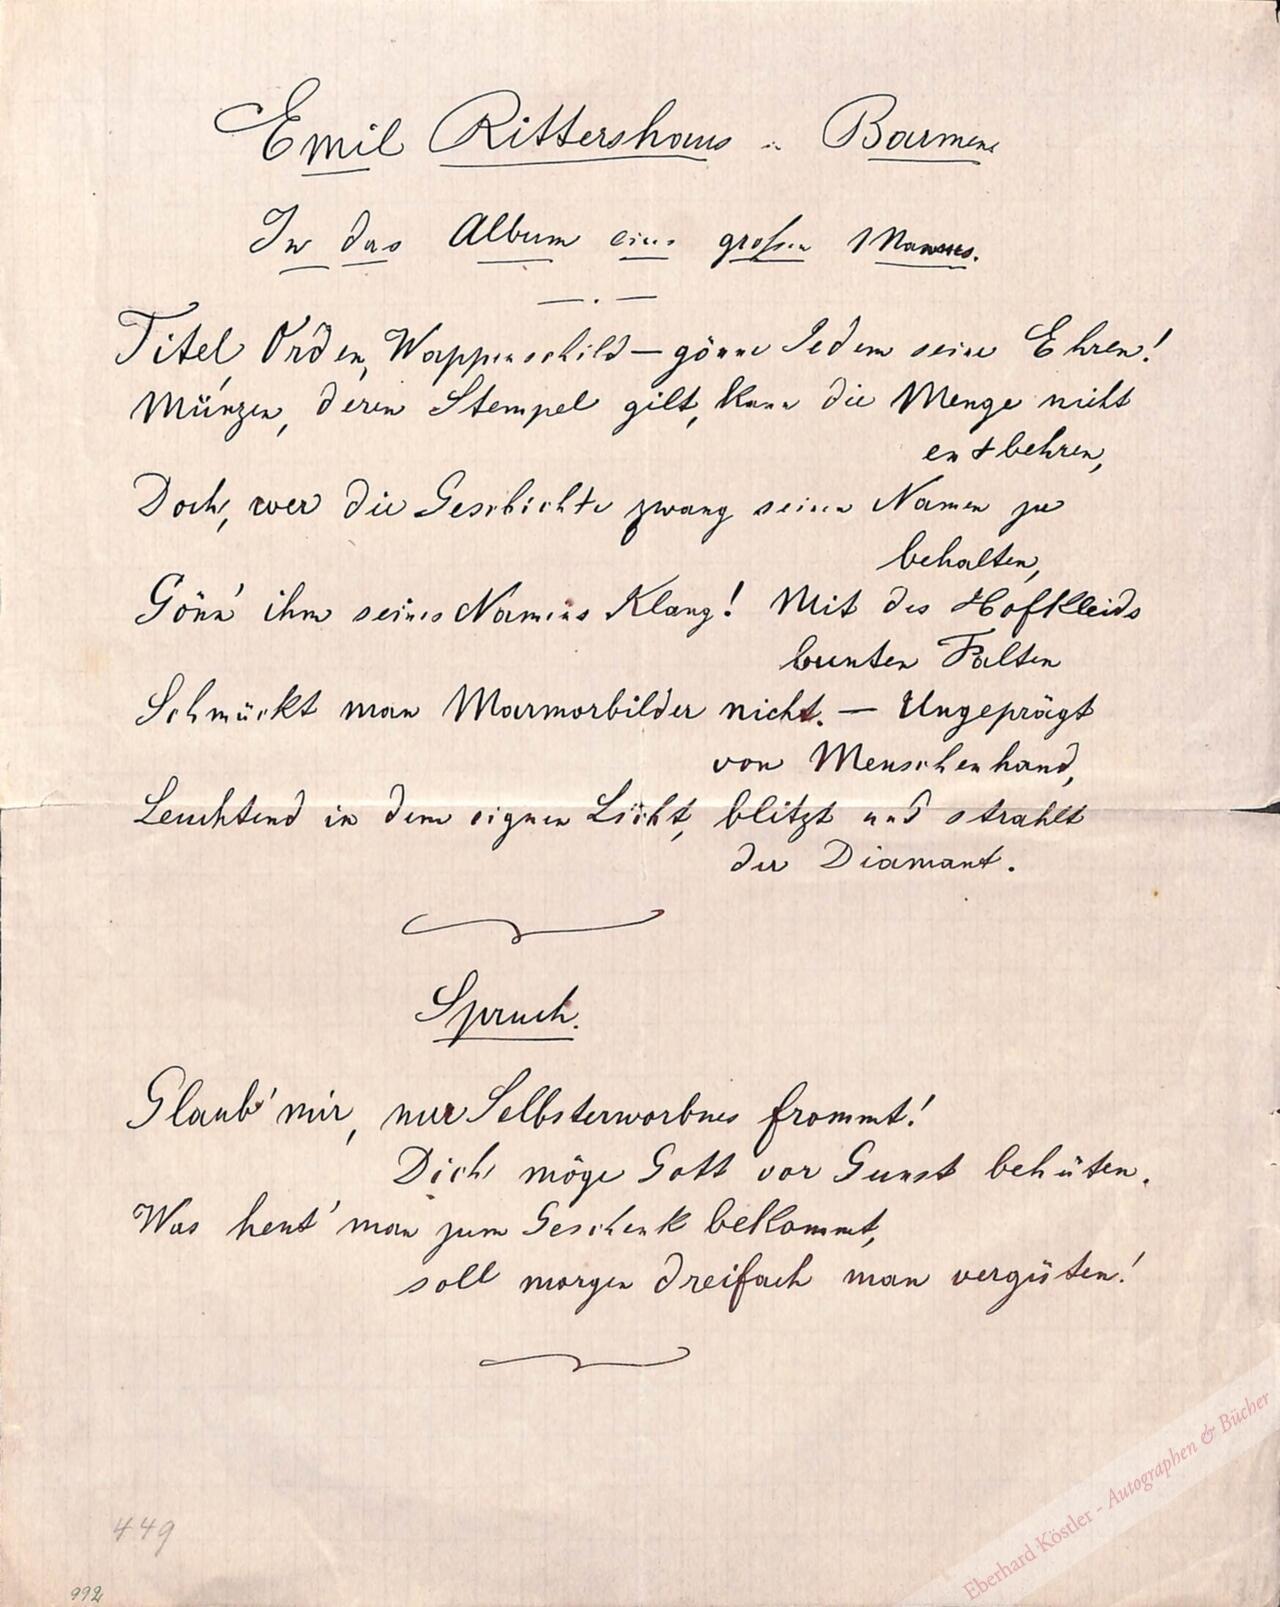 Emil Rittershaus in Barmen
In das Album eines großen Mannes.
Titel, Orden, Wappenschild – gönne Jedem seine Ehren!
Münzen, deren Stempel gilt, kann die Menge nicht
entbehren,
Doch, wer die Geschichte zwang seinen Namen zu
behalten,
Gönn' ihm seines Namens Klang! Mit des Hofkleids
bunten Falten
Schmückt man Marmorbilder nicht. – Ungeprägt
von Menschenhand,
Leuchtend in dem eignen Licht, blitzt und strahlt
der Diamant.
Spruch.
Glaub' mir, nur Selbsterworbnes frommt!
Dich möge Gott vor Gunst behüten.
Was heut' man zum Geschenk bekommt,
soll morgen dreifach man vergüten!
449
992
Eberhard Köstler - Autographen & Bücher